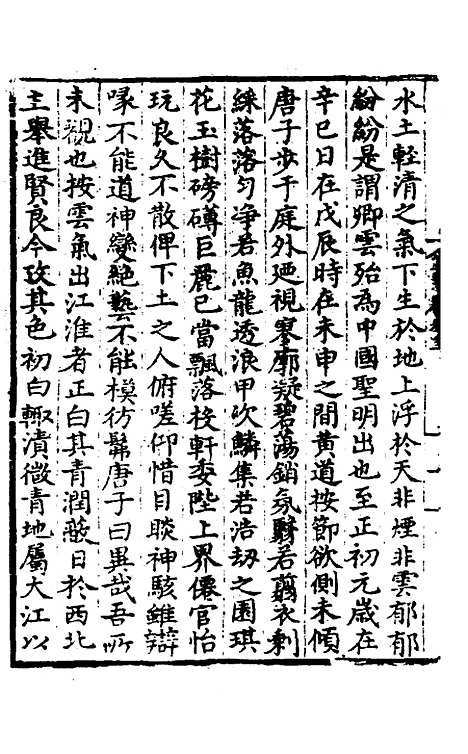 水土輕清之氣下生於地上浮於天非煙非雲郁郁
紛紛是謂卿雲殆爲中國聖明出也至正初元歲在
辛巳日在戊辰時在未申之間黄道按節欲側未傾
唐子步于庭外廼視寥廓凝碧蕩銷氛翳若翦衣剩
綵落落匀净若魚龍透浪甲次鱗集若浩劫之園琪
花玉樹磅礴巨麗已當飄落投軒委陛上界僊官怡
玩良久不散俾下土之人俯嗟仰惜目睒神駭雖辯
喙不能道神變絶藝不能模彷髴唐子曰異哉吾所
未覩也按雲氣出江淮者正白其青潤蔽日於西北
主舉進賢良今攷其色初白輙漬微青地屬大江以